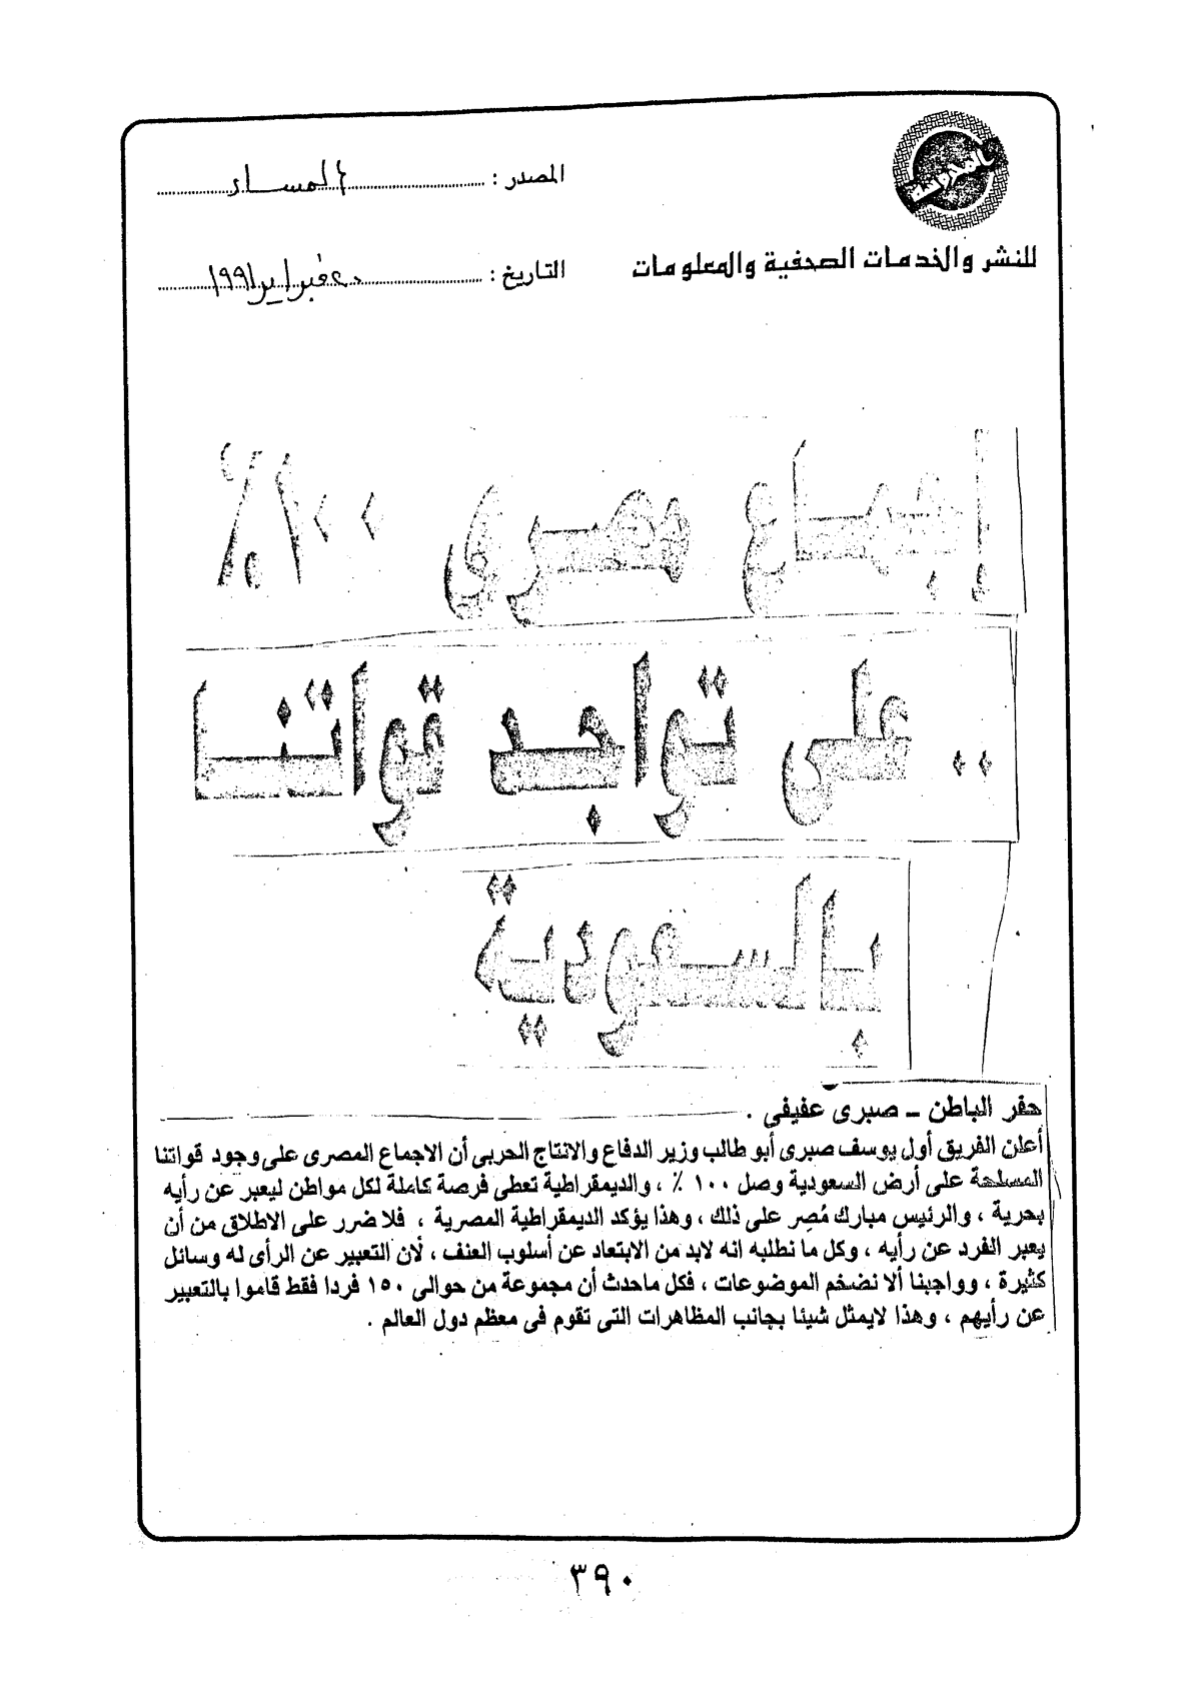 المصدر : المساء
للنشر والخدمات الصحفية والمعلومات
التاريخ : فبراير ١٩٩١
إجماع مصرى ١٠٠٪
.. على تواجد قواتنا
بالسعودية
حفر الباطن ـ صبرى عفيفى .
أعلن الفريق أول يوسف صبرى أبو طالب وزير الدفاع والانتاج الحربى أن الاجماع المصرى على وجود قواتنا
المسلحة على أرض السعودية وصل ١٠٠ ٪ ، والديمقراطية تعطى فرصة كاملة لكل مواطن ليعبر عن رأيه
بحرية ، والرئيس مبارك مُصِر على ذلك ، وهذا يؤكد الديمقراطية المصرية ، فلا ضرر على الاطلاق من أن
يعبر الفرد عن رأيه ، وكل ما نطلبه انه لابد من الابتعاد عن أسلوب العنف ، لأن التعبير عن الرأى له وسائل
كثيرة ، وواجبنا ألا نضخم الموضوعات ، فكل ماحدث أن مجموعة من حوالى ١٥٠ فردا فقط قاموا بالتعبير
عن رأيهم ، وهذا لايمثل شيئا بجانب المظاهرات التى تقوم فى معظم دول العالم .
٣٩٠